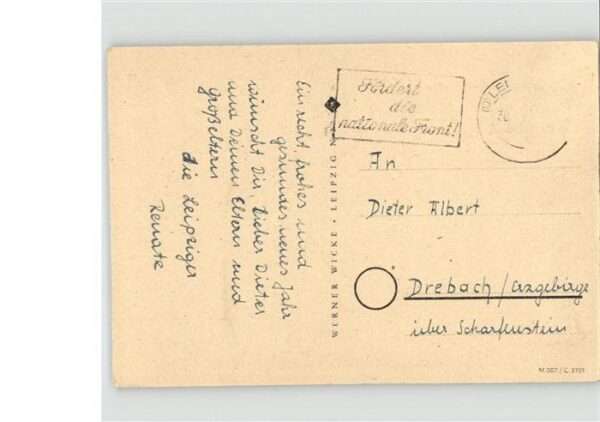 Ein recht frohes und
gesundes neues Jahr
wünscht Dir, lieber Dieter
und Deinen Eltern und
Großeltern
die Leipziger
Renate
WERNER WICKE • LEIPZIG
Fördert
die
nationale Front!
LEI
An
Dieter Albert
Drebach/Erzgebirge
über Scharfenstein